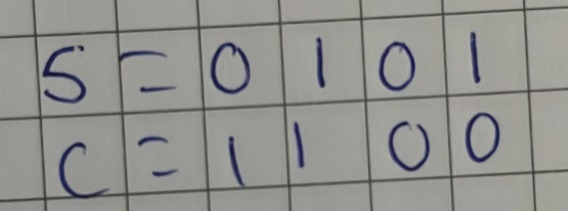 5 = 0 1 0 1
C = 1 1 0 0